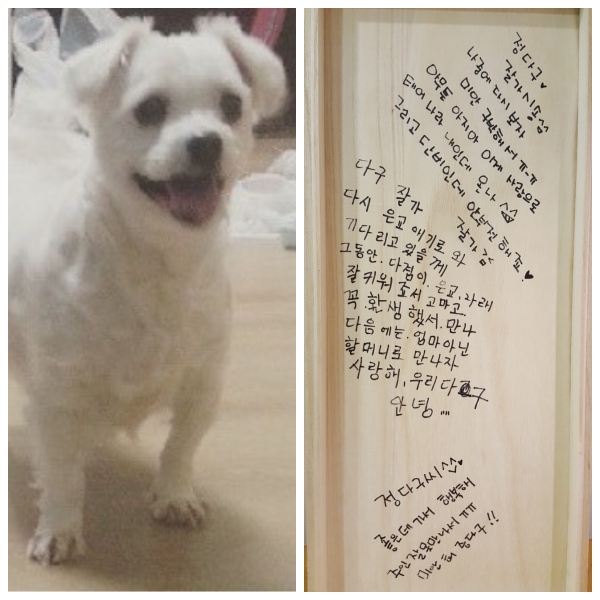 정다구♥
잘가
나중에 다시 보자
미안 구박해서 ㅠ-ㅠ
아무튼 아지야 이제 사랑으로
태어나라 내인데 온나 ^^
그리고 단비인데 안부전해죠!♥
잘가
다구 잘가
다시 은교 애기로 와
기다리고 있을께
그동안. 다점이. 은교, 라래
잘 키워 죠서 고마고
꼭. 환생 했서. 만나
다음에는. 엄마아닌
할머니로 만나자
사랑해, 우리다구
안녕...
정다구씨 ^^♥
좋은데가서 행복해
주인 잘못만나서 ㅠㅠ
미안해 정다구!!